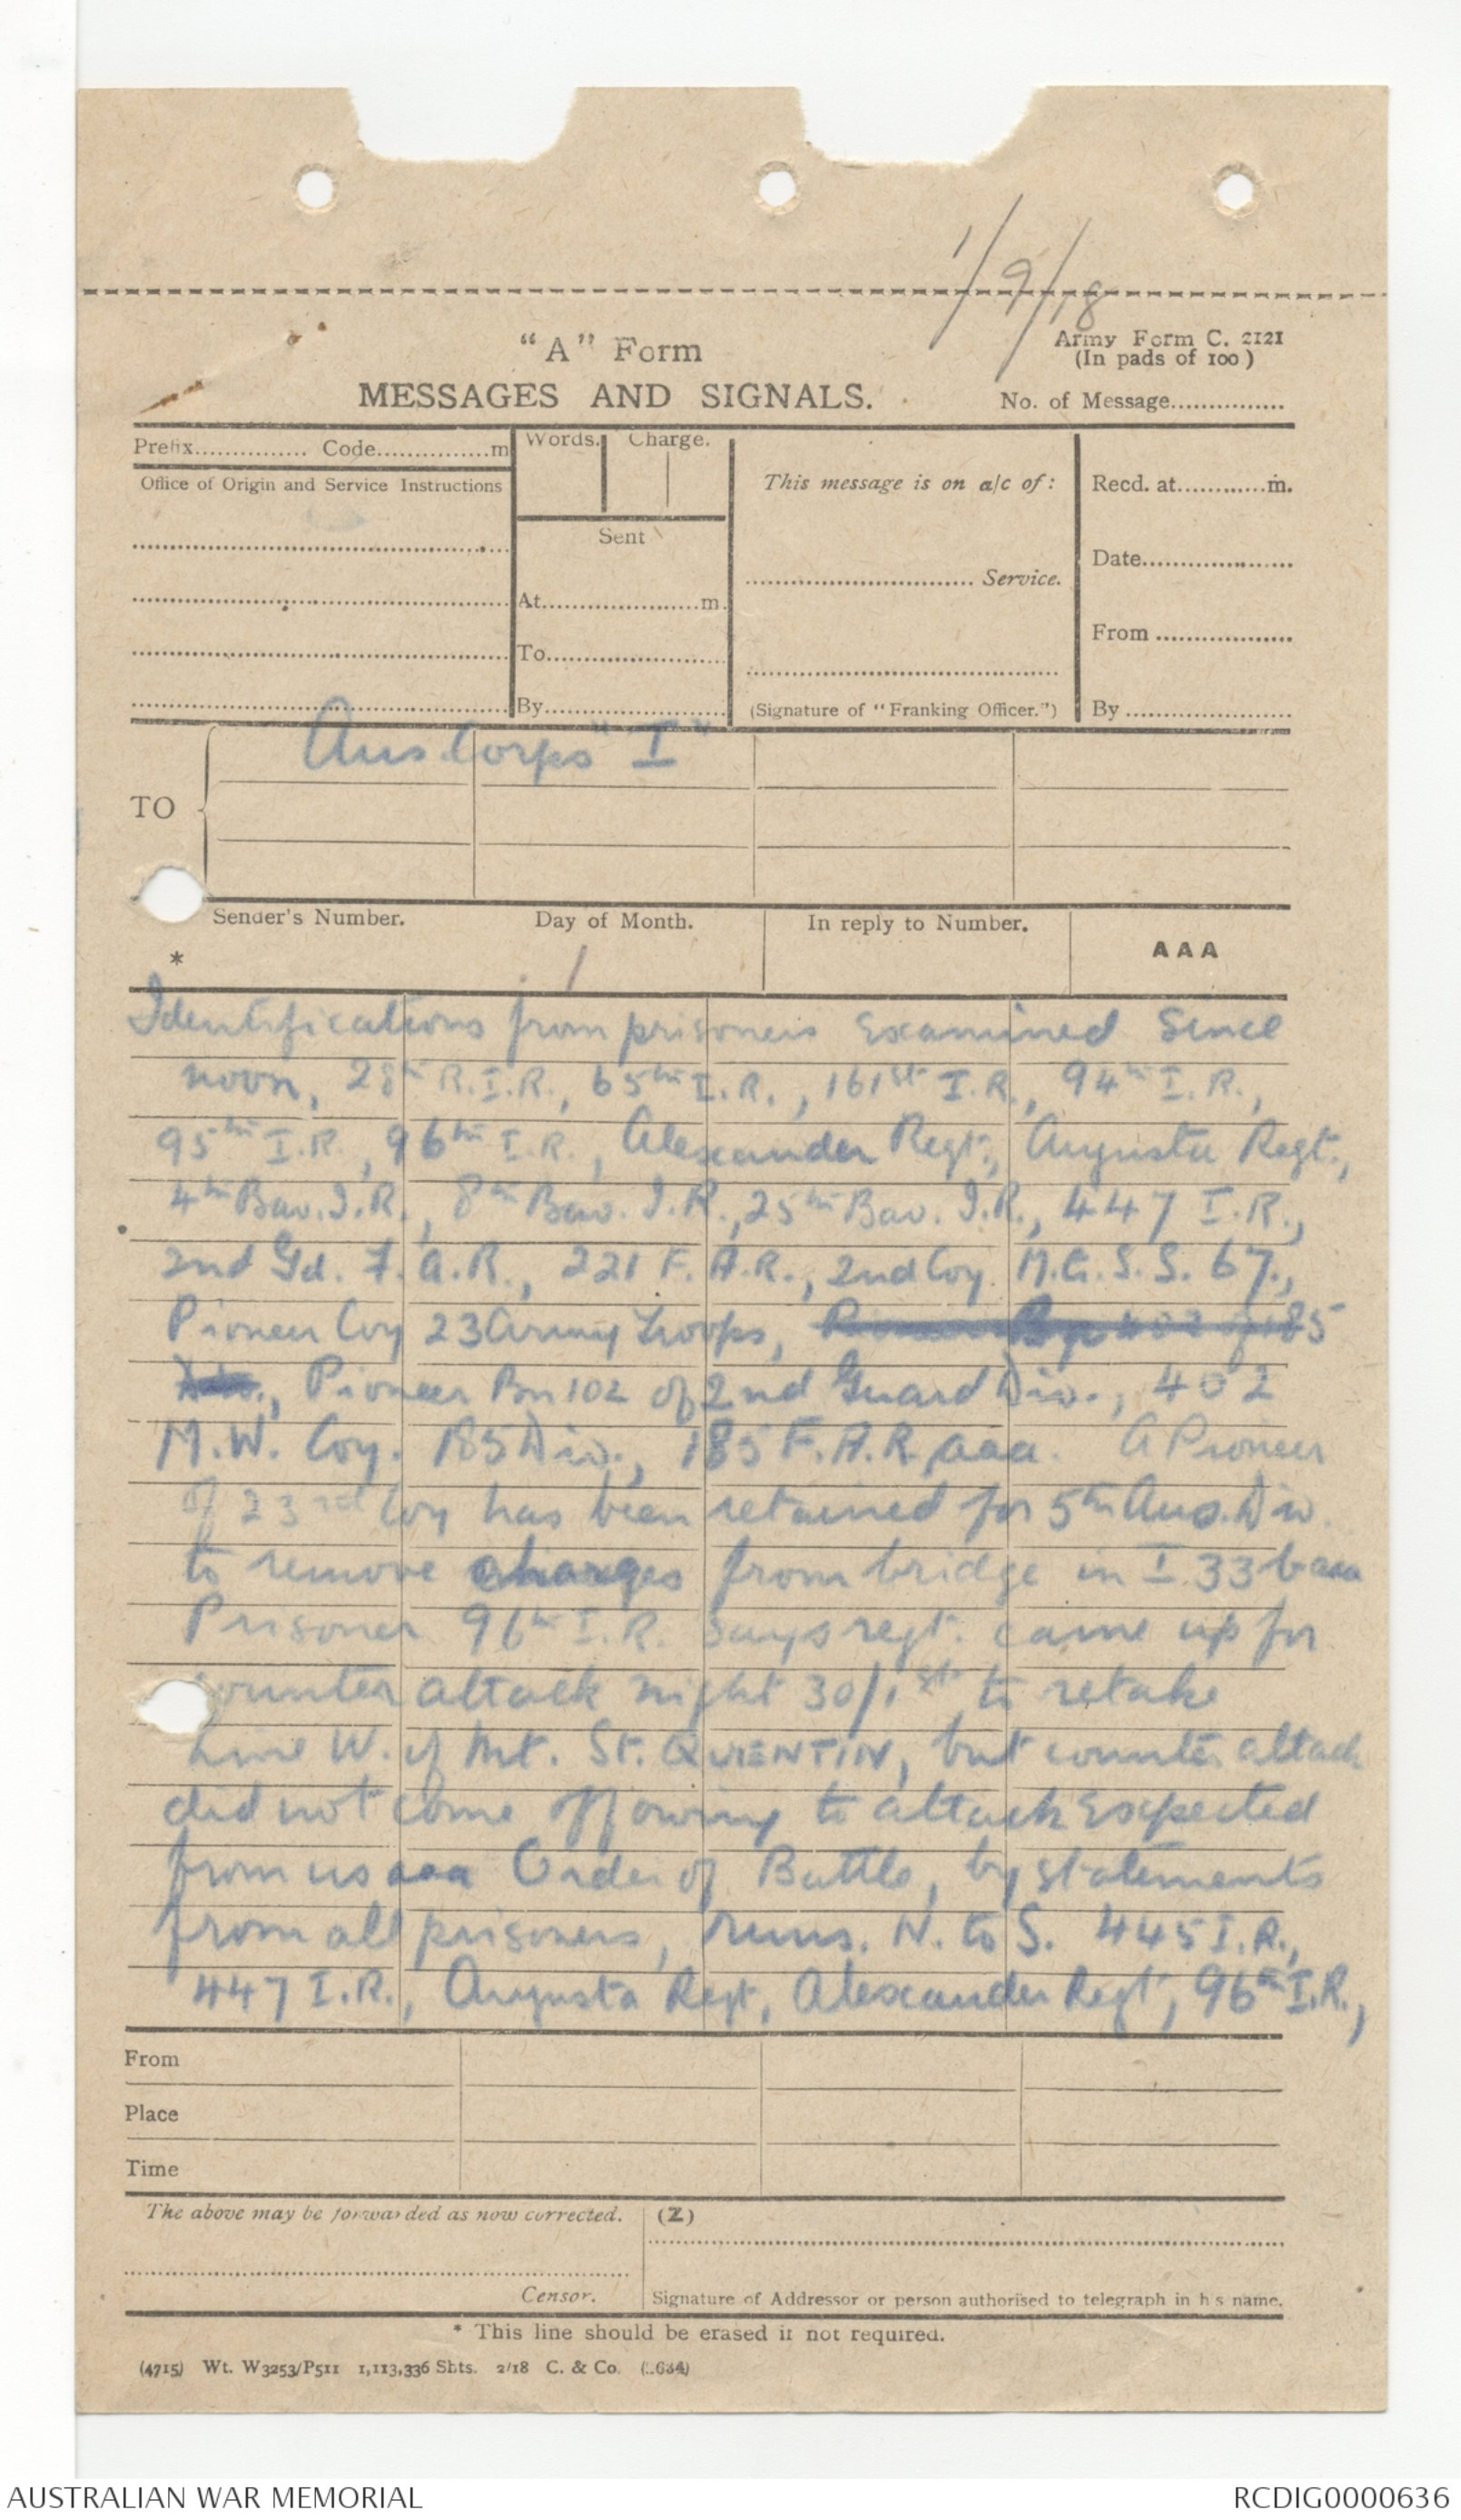 1/9/18
"A" Form
Army Form C. 2121
(In pads of 100)
MESSAGES AND SIGNALS.
No. of Message...............
Prefix............... Code...............m
Words. Charge.
This message is on a/c of:
Recd. at............m.
Office of Origin and Service Instructions
Sent
Date....................
............................ Service.
At....................m.
From ..................
To......................
By......................
(Signature of "Franking Officer.")
By ......................
TO
Aus Corps "I"
Sender's Number.
Day of Month.
In reply to Number.
AAA
*
1
Identifications from prisoners examined since
noon, 28th R.I.R., 65th I.R., 161st I.R., 94th I.R.,
95th I.R., 96th I.R., Alexander Regt., Augusta Regt.,
4th Bav. I.R., 8th Bav. I.R., 25th Bav. I.R., 447 I.R.,
2nd Gd. F.A.R., 221 F.A.R., 2nd Coy. M.G.S.S. 67.,
Pioneer Coy 23 Army Troops, 402 of 185
Div., Pioneer Bn 102 of 2nd Guard Div., 402
M.W. Coy. 185 Div., 185 F.A.R. aaa. A Pioneer
of 23rd Coy has been retained for 5th Aus. Div.
to remove charges from bridge in I 33 b aaa
Prisoner 96th I.R. says regt. came up for
counter attack night 30/1st to retake
Line W. of Mt. St. QUIENTIN, but counter attack
did not come off owing to attack expected
from us aaa Order of Battle, by statements
from all prisoners, runs. N. to S. 445 I.R.,
447 I.R., Augusta Regt, Alexander Regt, 96th I.R.,
From
Place
Time
The above may be forwarded as now corrected.
(Z)
Censor.
Signature of Addressor or person authorised to telegraph in his name.
* This line should be erased if not required.
(4715) Wt. W3253/P511 1,113,336 Shts. 2/18 C. & Co.
AUSTRALIAN WAR MEMORIAL
RCDIG0000636